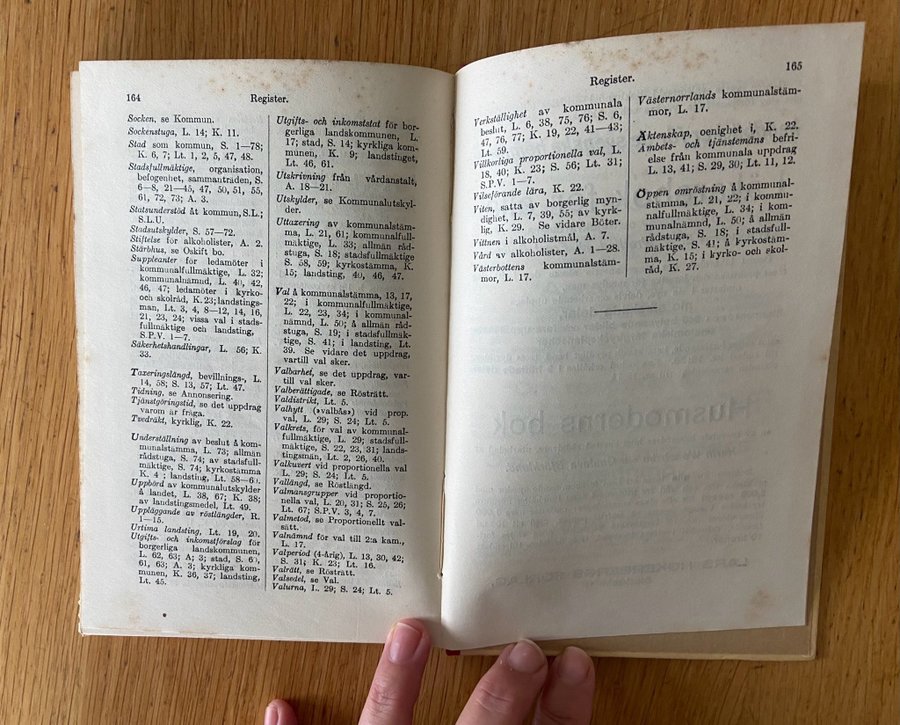 164
Register.
Socken, se Kommun.
Sockenstuga, L. 14; K. 11.
Stad som kommun, S. 1—78;
K. 6, 7; Lt. 1, 2, 5, 47, 48.
Stadsfullmäktige, organisation,
befogenhet, sammanträden, S.
6—8, 21—45, 47, 50, 51, 55,
61, 72, 73; A. 3.
Statsunderstöd åt kommun, S.L.;
S.L.U.
Stadsutskylder, S. 57—72.
Stiftelse för alkoholister, A. 2.
Stärbhus, se Oskift bo.
Suppleanter för ledamöter i
kommunalfullmäktige, L. 32;
kommunalnämnd, L. 40, 42,
46, 47; ledamöter i kyrko-
och skolråd, K. 23; landstings-
män, Lt. 3, 4, 8—12, 14, 16,
21, 23, 24; vissa val i stads-
fullmäktige och landsting,
S.P.V. 1—7.
Säkerhetshandlingar, L. 56; K.
33.
Taxeringslängd, bevillnings-, L.
14, 58; S. 13, 57; Lt. 47.
Tidning, se Annonsering.
Tjänstgöringstid, se det uppdrag
varom är fråga.
Tvedräkt, kyrklig, K. 22.
Underställning av beslut å kom-
munalstämma, L. 73; allmän
rådstuga, S. 74; av stadsfull-
mäktige, S. 74; kyrkostämma
K. 4; landsting, Lt. 58—60.
Uppbörd av kommunalutskylder
å landet, L. 38, 67; K. 38;
av landstingsmedel, Lt. 49.
Uppläggande av röstlängder, R.
1—15.
Urtima landsting, Lt. 19, 20.
Utgifts- och inkomstförslag för
borgerliga landskommunen,
L. 62, 63; A; 3; stad, S. 60,
61, 63; A. 3; kyrkliga kom-
munen, K. 36, 37; landsting,
Lt. 45.
Utgifts- och inkomststat för bor-
gerliga landskommunen, L.
17; stad, S. 14; kyrkliga kom-
munen, K. 9; landstinget,
Lt. 46, 61.
Utskrivning från vårdanstalt,
A. 18—21.
Utskylder, se Kommunalutskyl-
der.
Uttaxering av kommunalstäm-
ma, L. 21, 61; kommunalfull-
mäktige, L. 33; allmän råd-
stuga, S. 18; stadsfullmäktige
S. 58, 59; kyrkostämma, K.
15; landsting, 40, 46, 47.
Val å kommunalstämma, 13, 17,
22; i kommunalfullmäktige,
L. 22, 23, 34; i kommunal-
nämnd, L. 50; å allmän råd-
stuga, S. 19; i stadsfullmäk-
tige, S. 41; i landsting, Lt.
39. Se vidare det uppdrag,
vartill val sker.
Valbarhet, se det uppdrag, var-
till val sker.
Valberättigade, se Rösträtt.
Valdistrikt, Lt. 5.
Valhytt (»valbås») vid prop.
val, L. 29; S. 24; Lt. 5.
Valkrets, för val av kommunal-
fullmäktige, L. 29; stadsfull-
mäktige, S. 22, 23, 31; lands-
tingsmän, Lt. 2, 26, 40.
Valkuvert vid proportionella val
L. 29; S. 24; Lt. 5.
Vallängd, se Röstlängd.
Valmansgrupper vid proportio-
nella val, L. 20, 31; S. 25, 26;
Lt. 67; S.P.V. 3, 4, 7.
Valmetod, se Proportionellt val-
sätt.
Valnämnd för val till 2:a kam.,
L. 17.
Valperiod (4-årig), L. 13, 30, 42;
S. 31; K. 23; Lt. 16.
Valrätt, se Rösträtt.
Valsedel, se Val.
Valurna, L. 29; S. 24; Lt. 5.
Register.
165
Verkställighet av kommunala
beslut, L. 6, 38, 75, 76; S. 6,
47, 76, 77; K. 19, 22, 41—43;
Lt. 59.
Villkorliga proportionella val, L.
18, 40; K. 23; S. 56; Lt. 31;
S.P.V. 1—7.
Vilseförande lära, K. 22.
Viten, satta av borgerlig myn-
dighet, L. 7, 39, 55; av kyrk-
lig, K. 29. Se vidare Böter.
Vittnen i alkoholistmål, A. 7.
Vård av alkoholister, A. 1—28.
Västerbottens kommunalstäm-
mor, L. 17.
Västernorrlands kommunalstäm-
mor, L. 17.
Äktenskap, oenighet i, K. 22.
Ämbets- och tjänstemäns befri-
else från kommunala uppdrag
L. 13, 41; S. 29, 30; Lt. 11, 12.
Öppen omröstning å kommunal-
stämma, L. 21, 22; i kommu-
nalfullmäktige, L. 34; i kom-
munalnämnd, L. 50; å allmän
rådstuga, S. 18; i stadsfull-
mäktige, S. 41; å kyrkostäm-
ma, K. 15; i kyrko- och skol-
råd, K. 27.